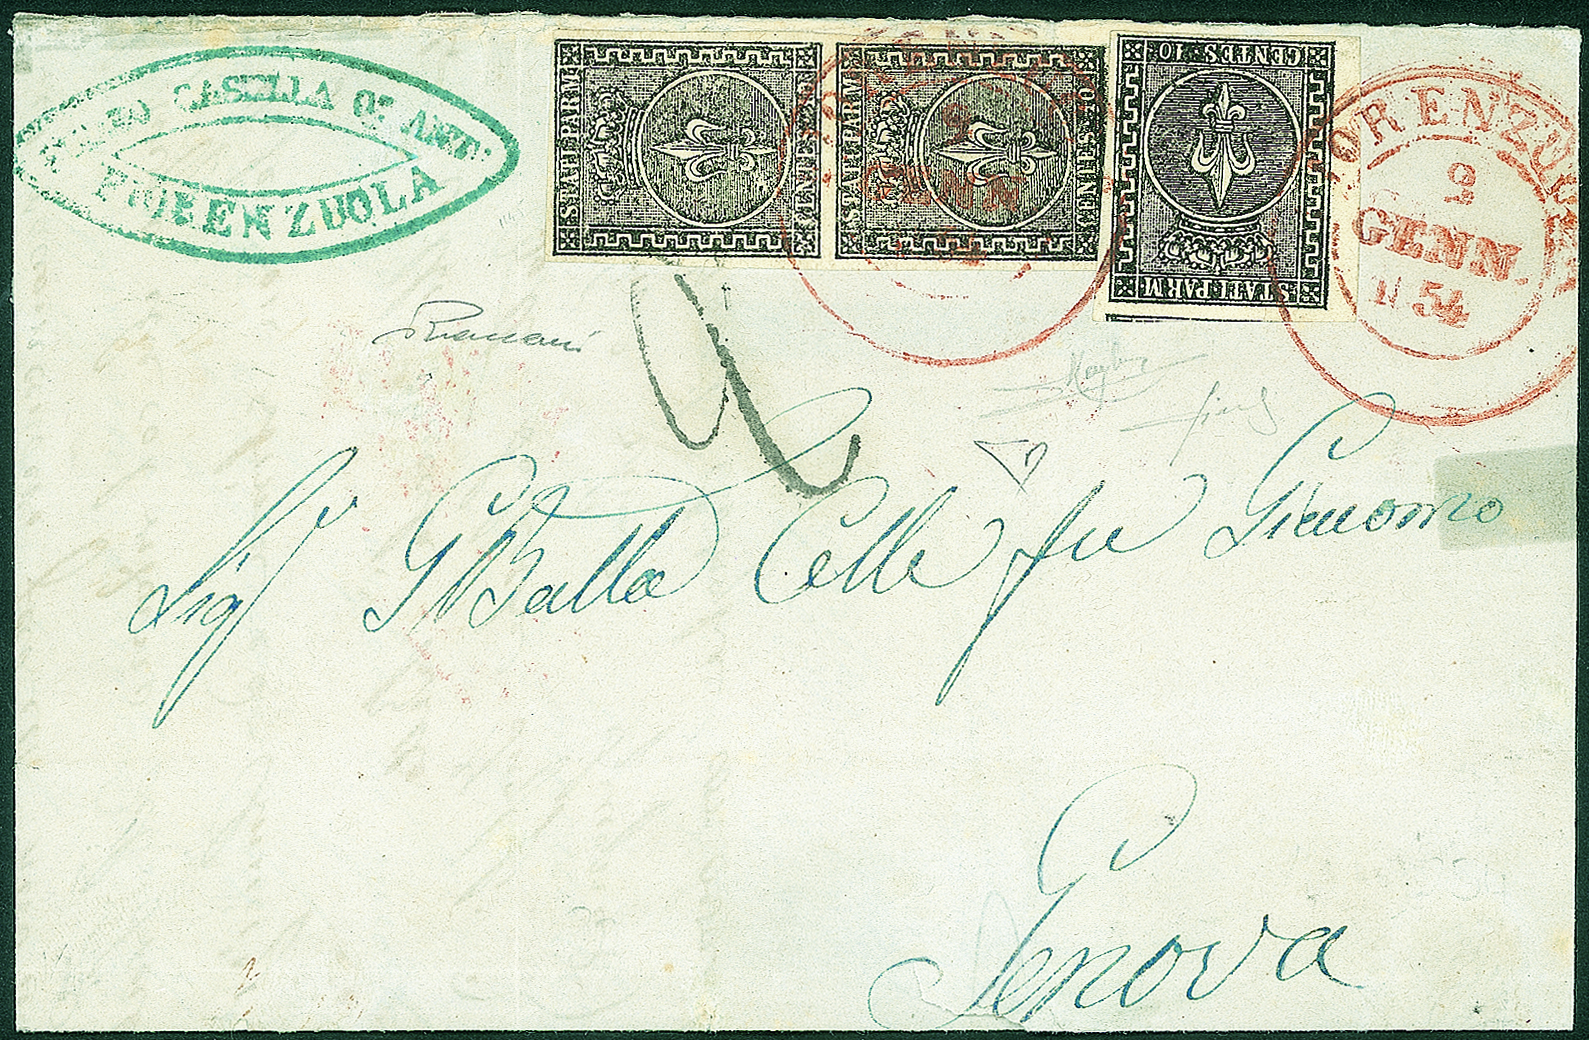 CASELLA Q^m ANT^o
FIORENZUOLA
STATI PARM
CENTES. 10
STATI PARM
CENTES. 10
CENTES. 10
STATI PARM
9
GENN
54
FIORENZUOLA
9
GENN.
54
Sig^r G Batta Celle fu Giacomo
Genova